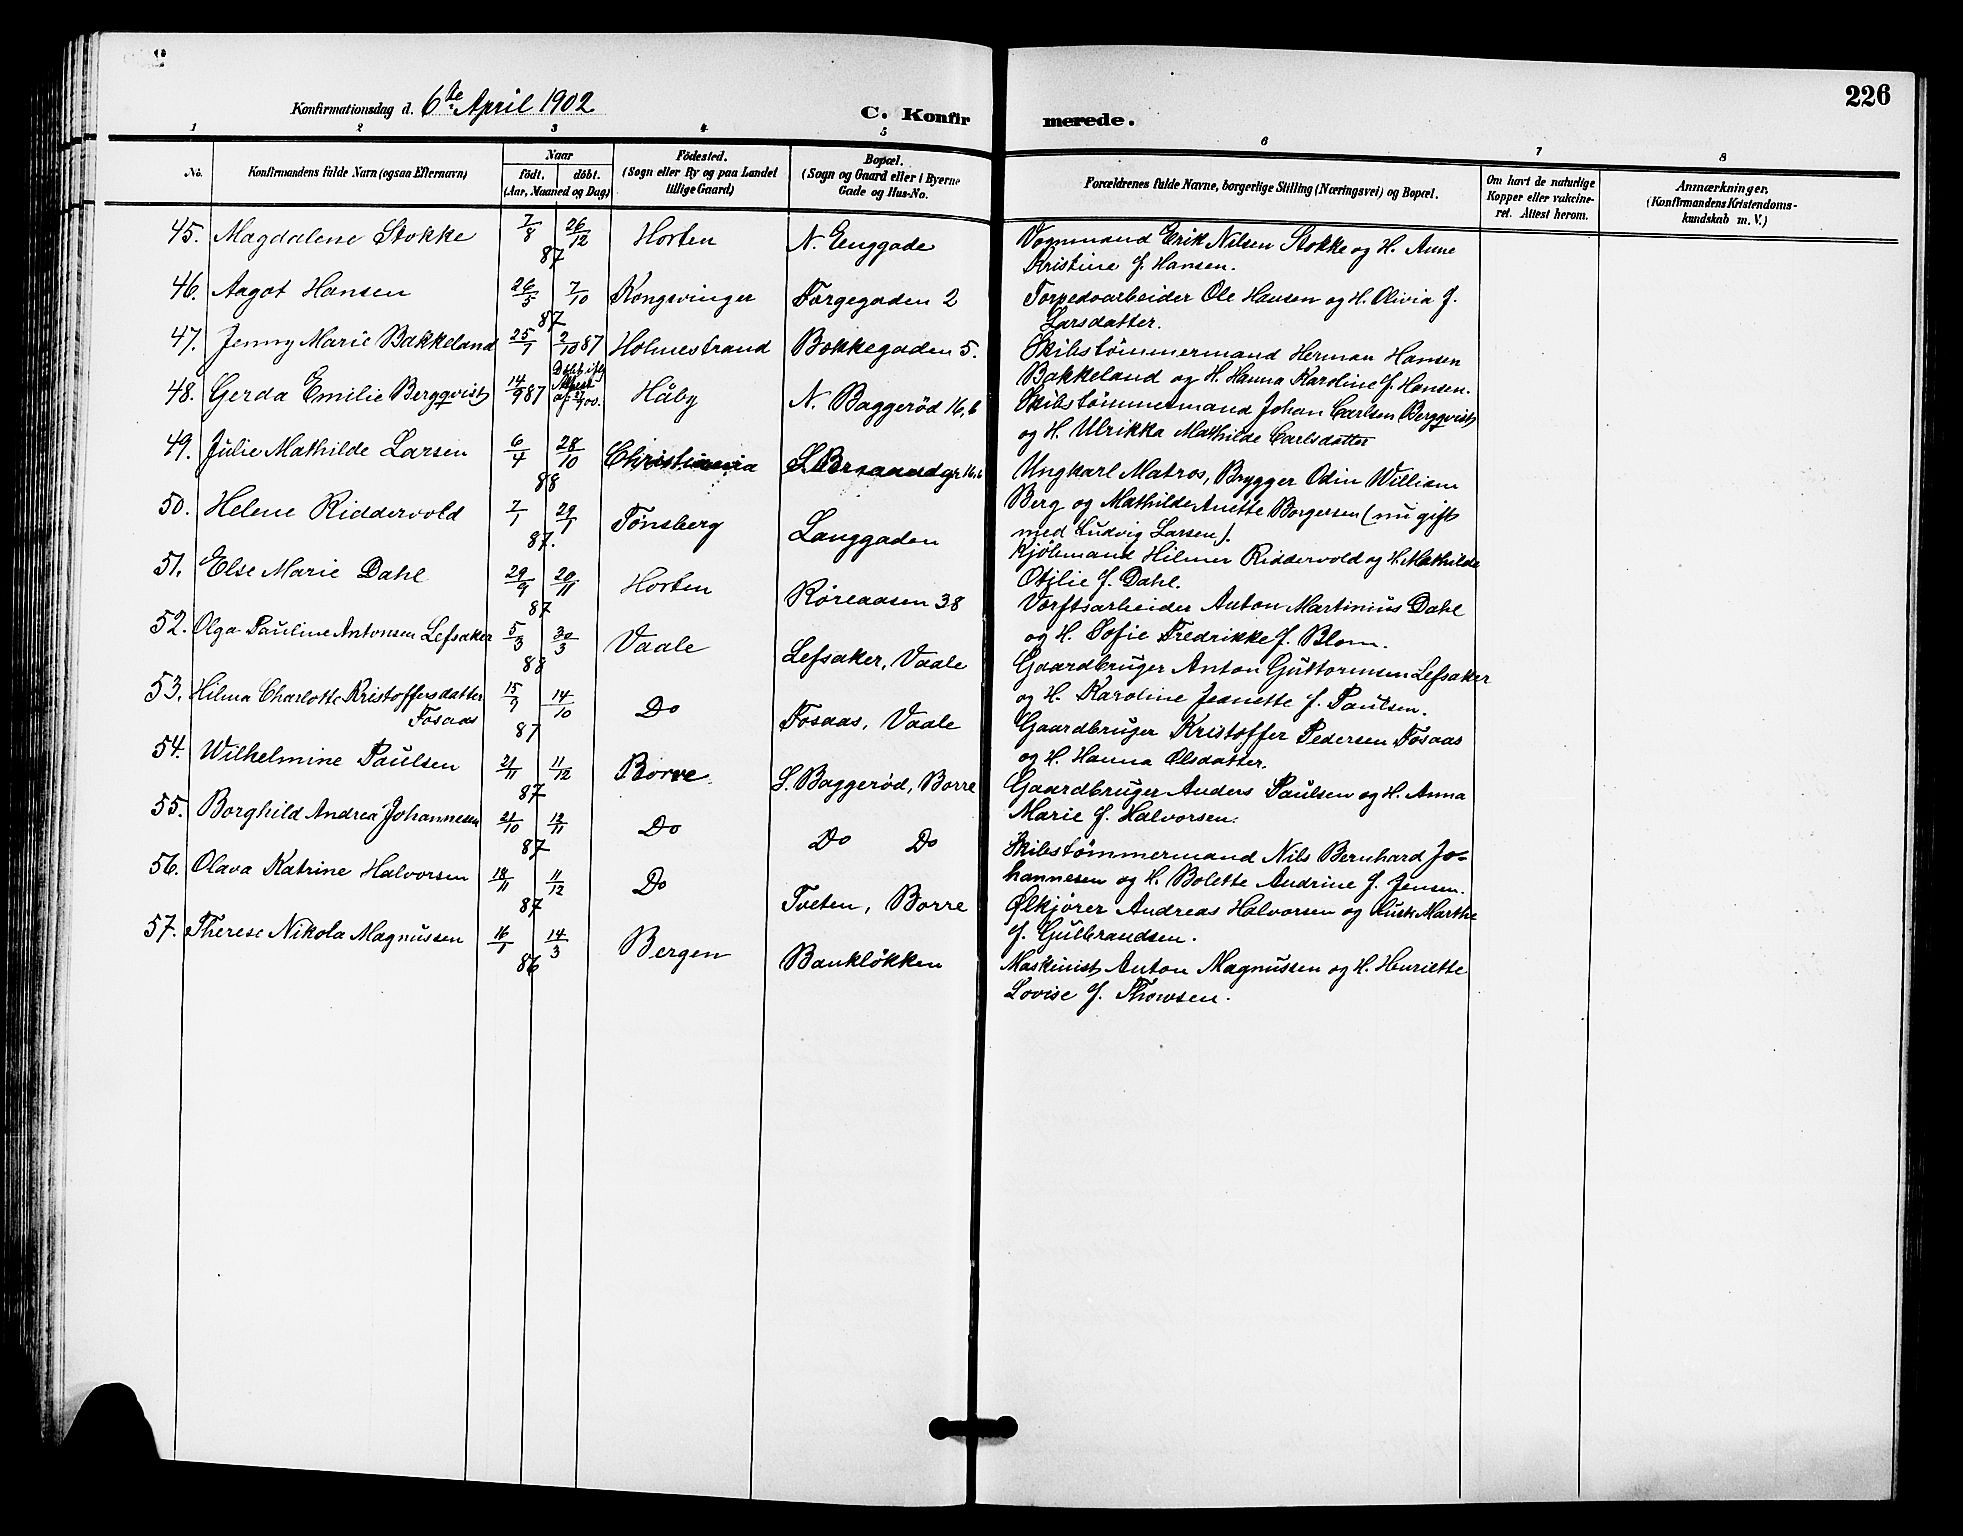 226
Konfirmationsdag d. 6te April 1902
C. Konfirmerede.
1 2 3 4 5 6 7 8
No. Konfirmandens fulde Navn (ogsaa Efternavn) Naar Födt. döbt. (Aar, Maaned og Dag) Födested. (Sogn eller By og paa Landet tillige Gaard) Bopæl. (Sogn og Gaard eller i Byerne Gade og Hus-No. Forældrenes fulde Navne, borgerlige Stilling (Næringsvei) og Bopæl. Om havt de naturlige Kopper eller vakcineret. Attest herom. Anmærkninger. (Konfirmandens Kristendomskundskab m. V.)
45. Magdalene Stokke 7/8 26/12 87 Horten N. Enggade Vognmand Erik Nilsen Stokke og H. Anne
Kristine f. Hansen.
46. Aagot Hansen 26/5 7/10 87 Kongsvinger Torgegaden 2 Torpedoarbeider Ole Hansen og H. Olivia f.
Larsdatter.
47. Jenny Marie Bakkeland 25/1 2/10 87 Holmestrand Bokkegaden 5. Skibstömmermand Herman Hansen
Bakkeland og H. Hanna Karoline f. Hansen.
48. Gerda Emilie Bergqvist 14/9 87 Döbt ifg Attest af Håby N. Baggerød 16,b Skibstömmermand Johan Carlsen Bergqvist
og H. Ulrikka Mathilde Carlsdatter
49. Julie Mathilde Larsen 6/4 28/10 88 Christiania Ungkarl Matros, Brygger Odin William
Berg og Mathilde Anette Borgersen (nu gift
med Ludvig Larsen).
50. Helene Riddervold 7/1 29/1 87. Tönsberg Langgaden Kjölemand Hilmer Riddervold og H. Mathilde
Otilie f. Dahl.
51. Else Marie Dahl 29/9 20/11 87 Horten Röreaasen 38 Værftsarbeider Anton Martinius Dahl
og H. Sofie Fredrikke f. Blom.
52. Olga Pauline Antonsen Lefsaker 5/3 30/3 88 Vaale Lefsaker, Vaale Gaardbruger Anton Guttormsen Lefsaker
og H. Karoline Jeanette f. Paulsen.
53. Hilma Charlotte Kristoffersdatter 15/9 14/10 87 Do Fosaas, Vaale Gaardbruger Kristoffer Pedersen Fosaas
Fosaas og H. Hanna Olsdatter.
54. Wilhelmine Paulsen 21/11 11/12 87 Borre S. Baggerød, Borre Gaardbruger Anders Paulsen og H. Anna
Marie f. Halvorsen.
55. Borghild Andrea Johannesen 21/10 12/11 87 Do Do Do Skibstömmermand Nils Bernhard Jo-
hannesen og H. Bolette Andrine f. Jensen.
56. Olava Katrine Halvorsen 18/11 11/12 87 Do Tveten, Borre Ølkjører Andreas Halvorsen og Hustr Marthe
f. Gulbrandsen.
57. Therese Nikola Magnussen 16/1 14/3 86 Bergen Bankløkken Maskinist Anton Magnussen og H. Henriette
Lovise f. Thowsen.